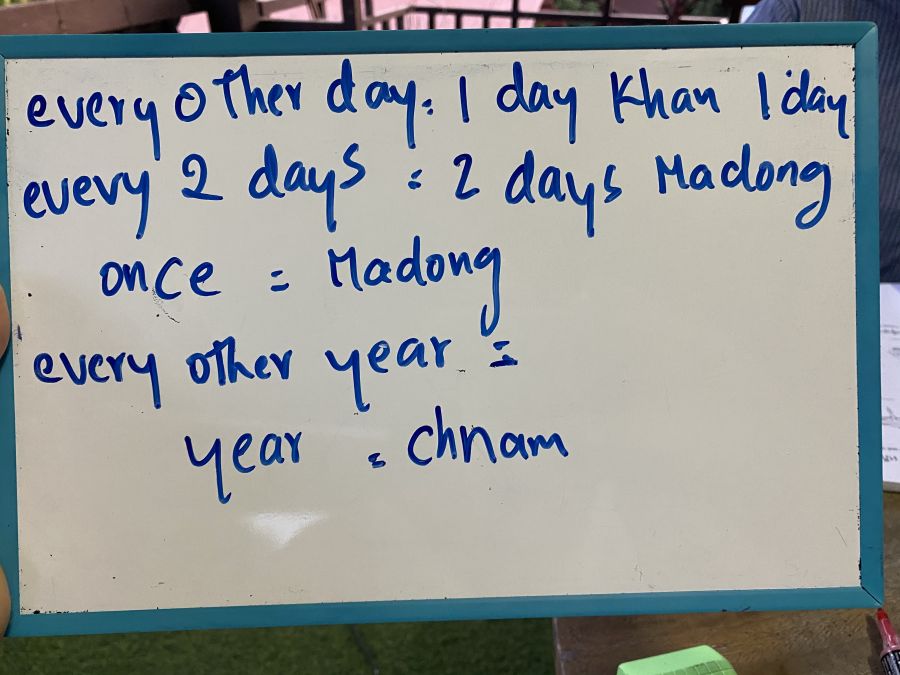 every other day: 1 day Khan 1 day
every 2 days : 2 days Madong
once = Madong
every other year =
year = chnam